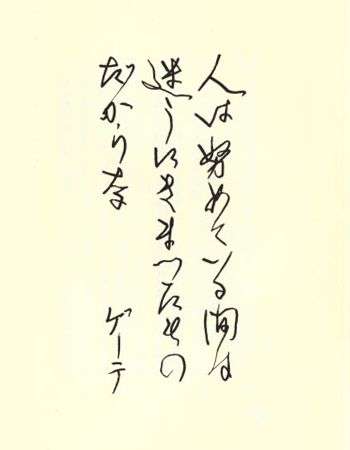 人は努めている間は
迷うにきまったもの
だからな　ゲーテ